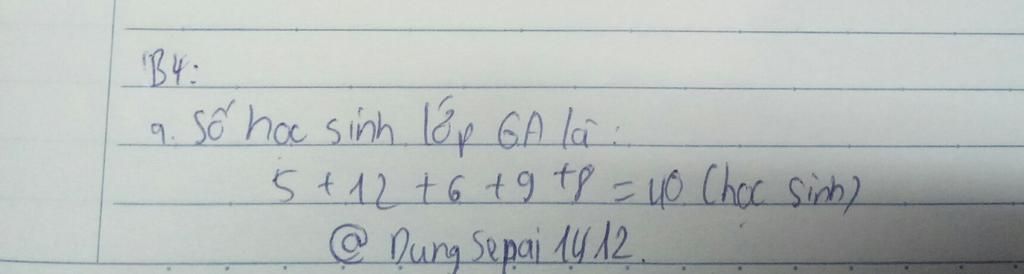 B4:
a. Số học sinh lớp 6A là:
5 + 12 + 6 + 9 + 8 = 40 (học sinh)
@ Dung Sepai 1412.